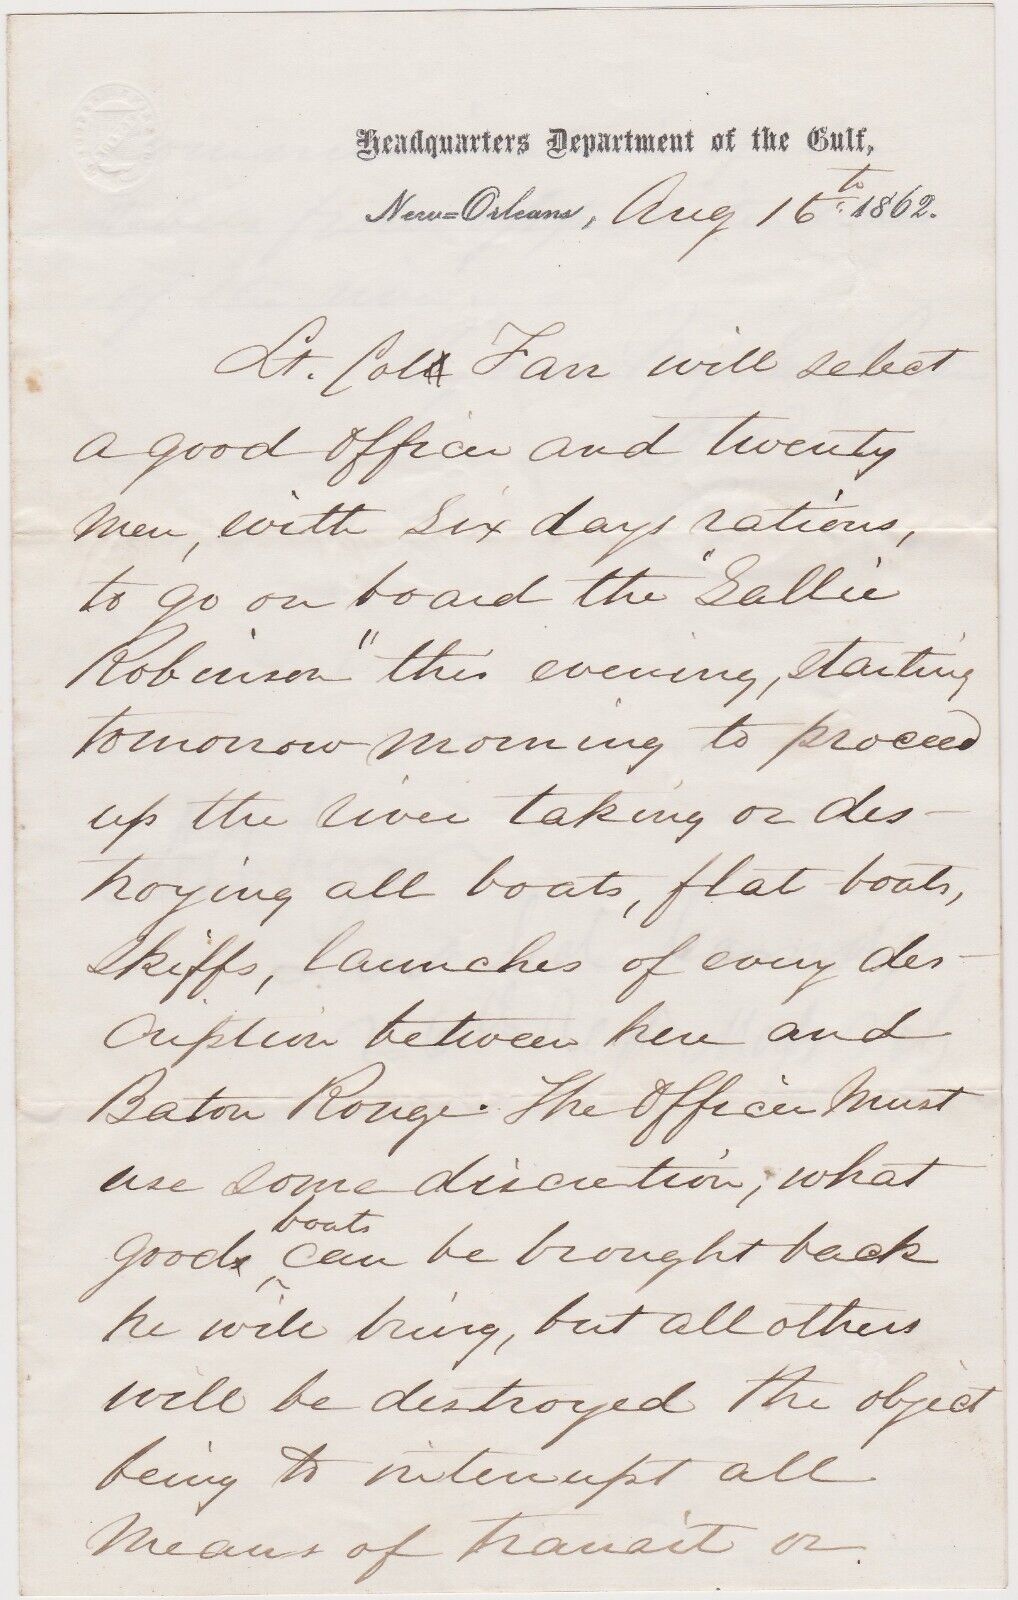 Headquarters Department of the Gulf,
New=Orleans, Aug 16th 1862.
Lt. Col Farr will select
a good Officer and twenty
men, with six days rations,
to go on board the "Sallie
Robinson" this evening, starting
tomorrow morning to proceed
up the river taking or des-
troying all boats, flat boats,
skiffs, launches of every des-
cription between here and
Baton Rouge. The Officer must
use some discretion, what
boats
good can be brought back
he will bring, but all others
will be destroyed the object
being to interrupt all
means of transit or